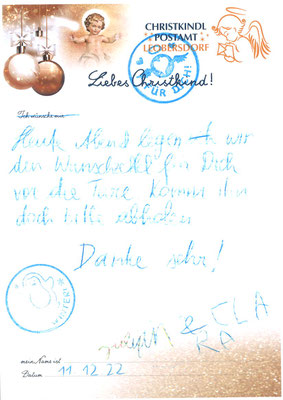 CHRISTKINDL
POSTAMT
LEOBERSDORF
Liebes Christkind!
FÜR DICH!
Ich wünsche mir
Heute Abend legen wir
den Wunschzettel für Dich
vor die Türe. Kannst du
doch bitte abholen
Danke sehr!
WINTER
& CLA
RA
mein Name ist
Datum 11 12 22